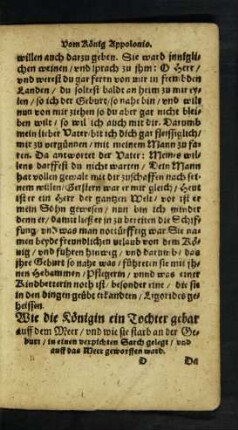 Vom König Appolonio.
willen auch darzu geben. Sie ward inniglichen
weinen / vnd sprach zu jhm: O Herr /
vnd werest du gar ferrn von mir in frembden
Landen / du soltest baldt an heim zu mir eylen
/ so ich der Geburt / so nahe bin / vnd wilt
nun von mir ziehen so du aber gar nicht bleiben
wilt / so wil ich auch mit dir. Darumb
mein lieber Vater / bit ich dich gar fleissiglich /
mir zu vergünnen / mit meinem Mann zu faren.
Da antwortet der Vater: Meines willens
darffest du nicht warten / Dein Mann
hat vollen gewalt mit dir zuschaffen nach seinem
willen / Gestern war er mir gleich / Heut
ist er ein Herr der gantzen Welt / vor ist er
mein Söhn gewesen / nun bin ich minder
denn er / damit ließ er in zu bereiten die Schiffung
vnd was man notürfftig war Sie namen
beyde freundlichen vrlaub von dem König
/ vnd fuhren hinweg / vnd darumb / das
jhre Geburt so nahe was / führeten sie mit jhnen
Hebammen / Pflegerin / vnnd was einer
Kindbetterin noch ist / besonder eine / die sie
in den dingen geübt erkandten / Ligorides geheissen.
Wie die Königin ein Tochter gebar
auff dem Meer / vnd wie sie starb an der Geburt
/ in einen verpichten Sarch gelegt / vnd
auff das Meer geworffen ward.
D Da